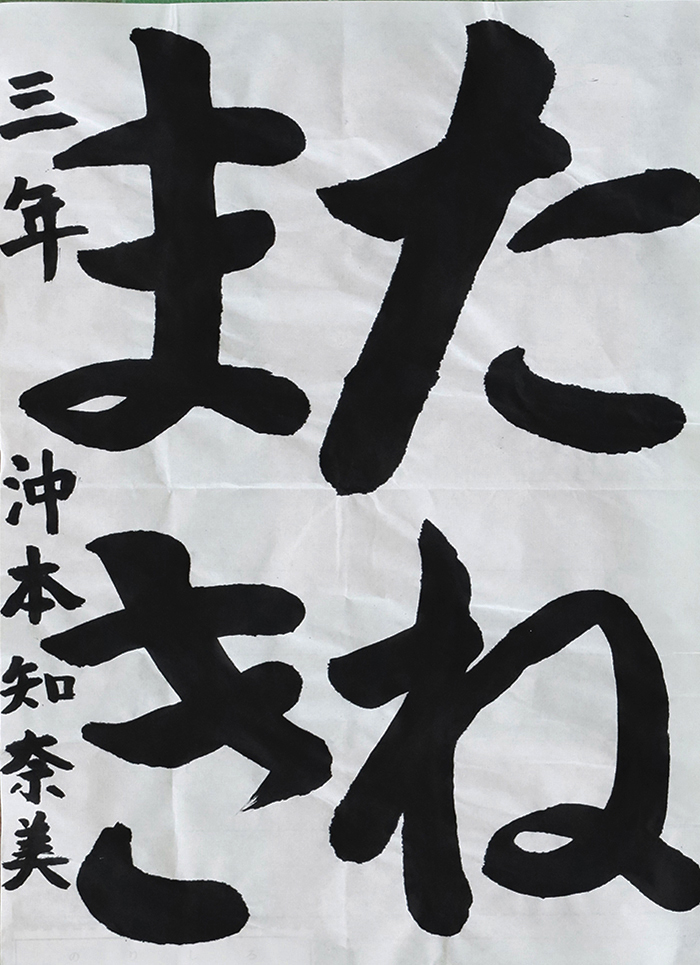 たね
まき
三年 沖本知奈美